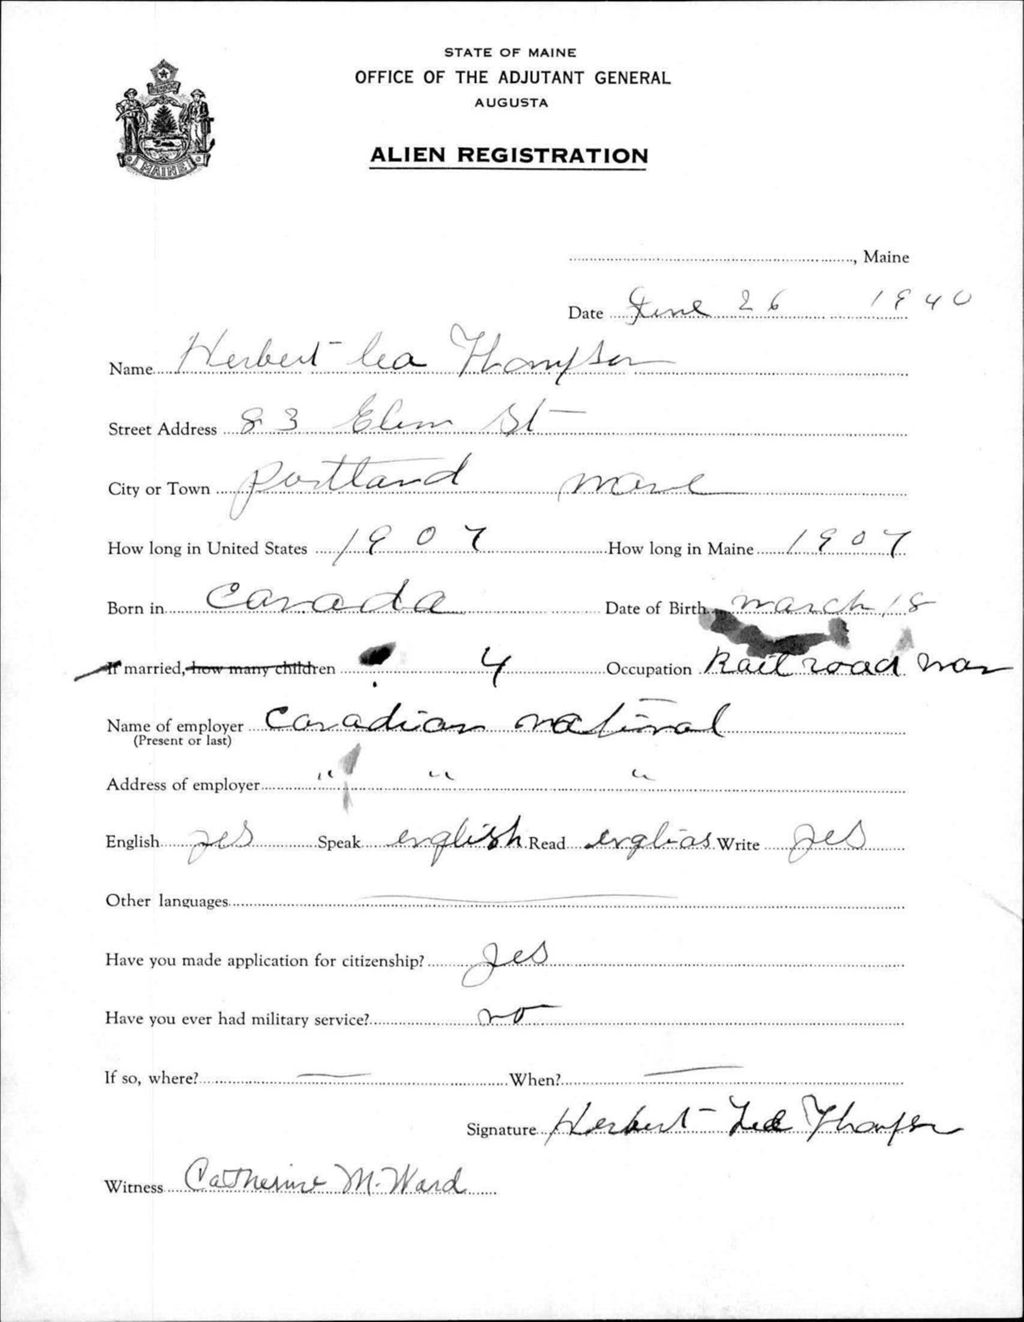 STATE OF MAINE
OFFICE OF THE ADJUTANT GENERAL
AUGUSTA
ALIEN REGISTRATION
MAINE
, Maine
Date June 26 1940
Name Herbert Lea Thompson
Street Address 83 Elem St
City or Town Portland
How long in United States 1907 How long in Maine 1907
Born in Canada Date of Birth march 18
If married, how many children 4 Occupation Railroad man
Name of employer Canadian national
(Present or last)
Address of employer " " "
English yes Speak english Read Write yes
Other languages
Have you made application for citizenship? yes
Have you ever had military service? no
If so, where? — When? —
Signature Herbert Thompson
Witness Catherine M. Ward